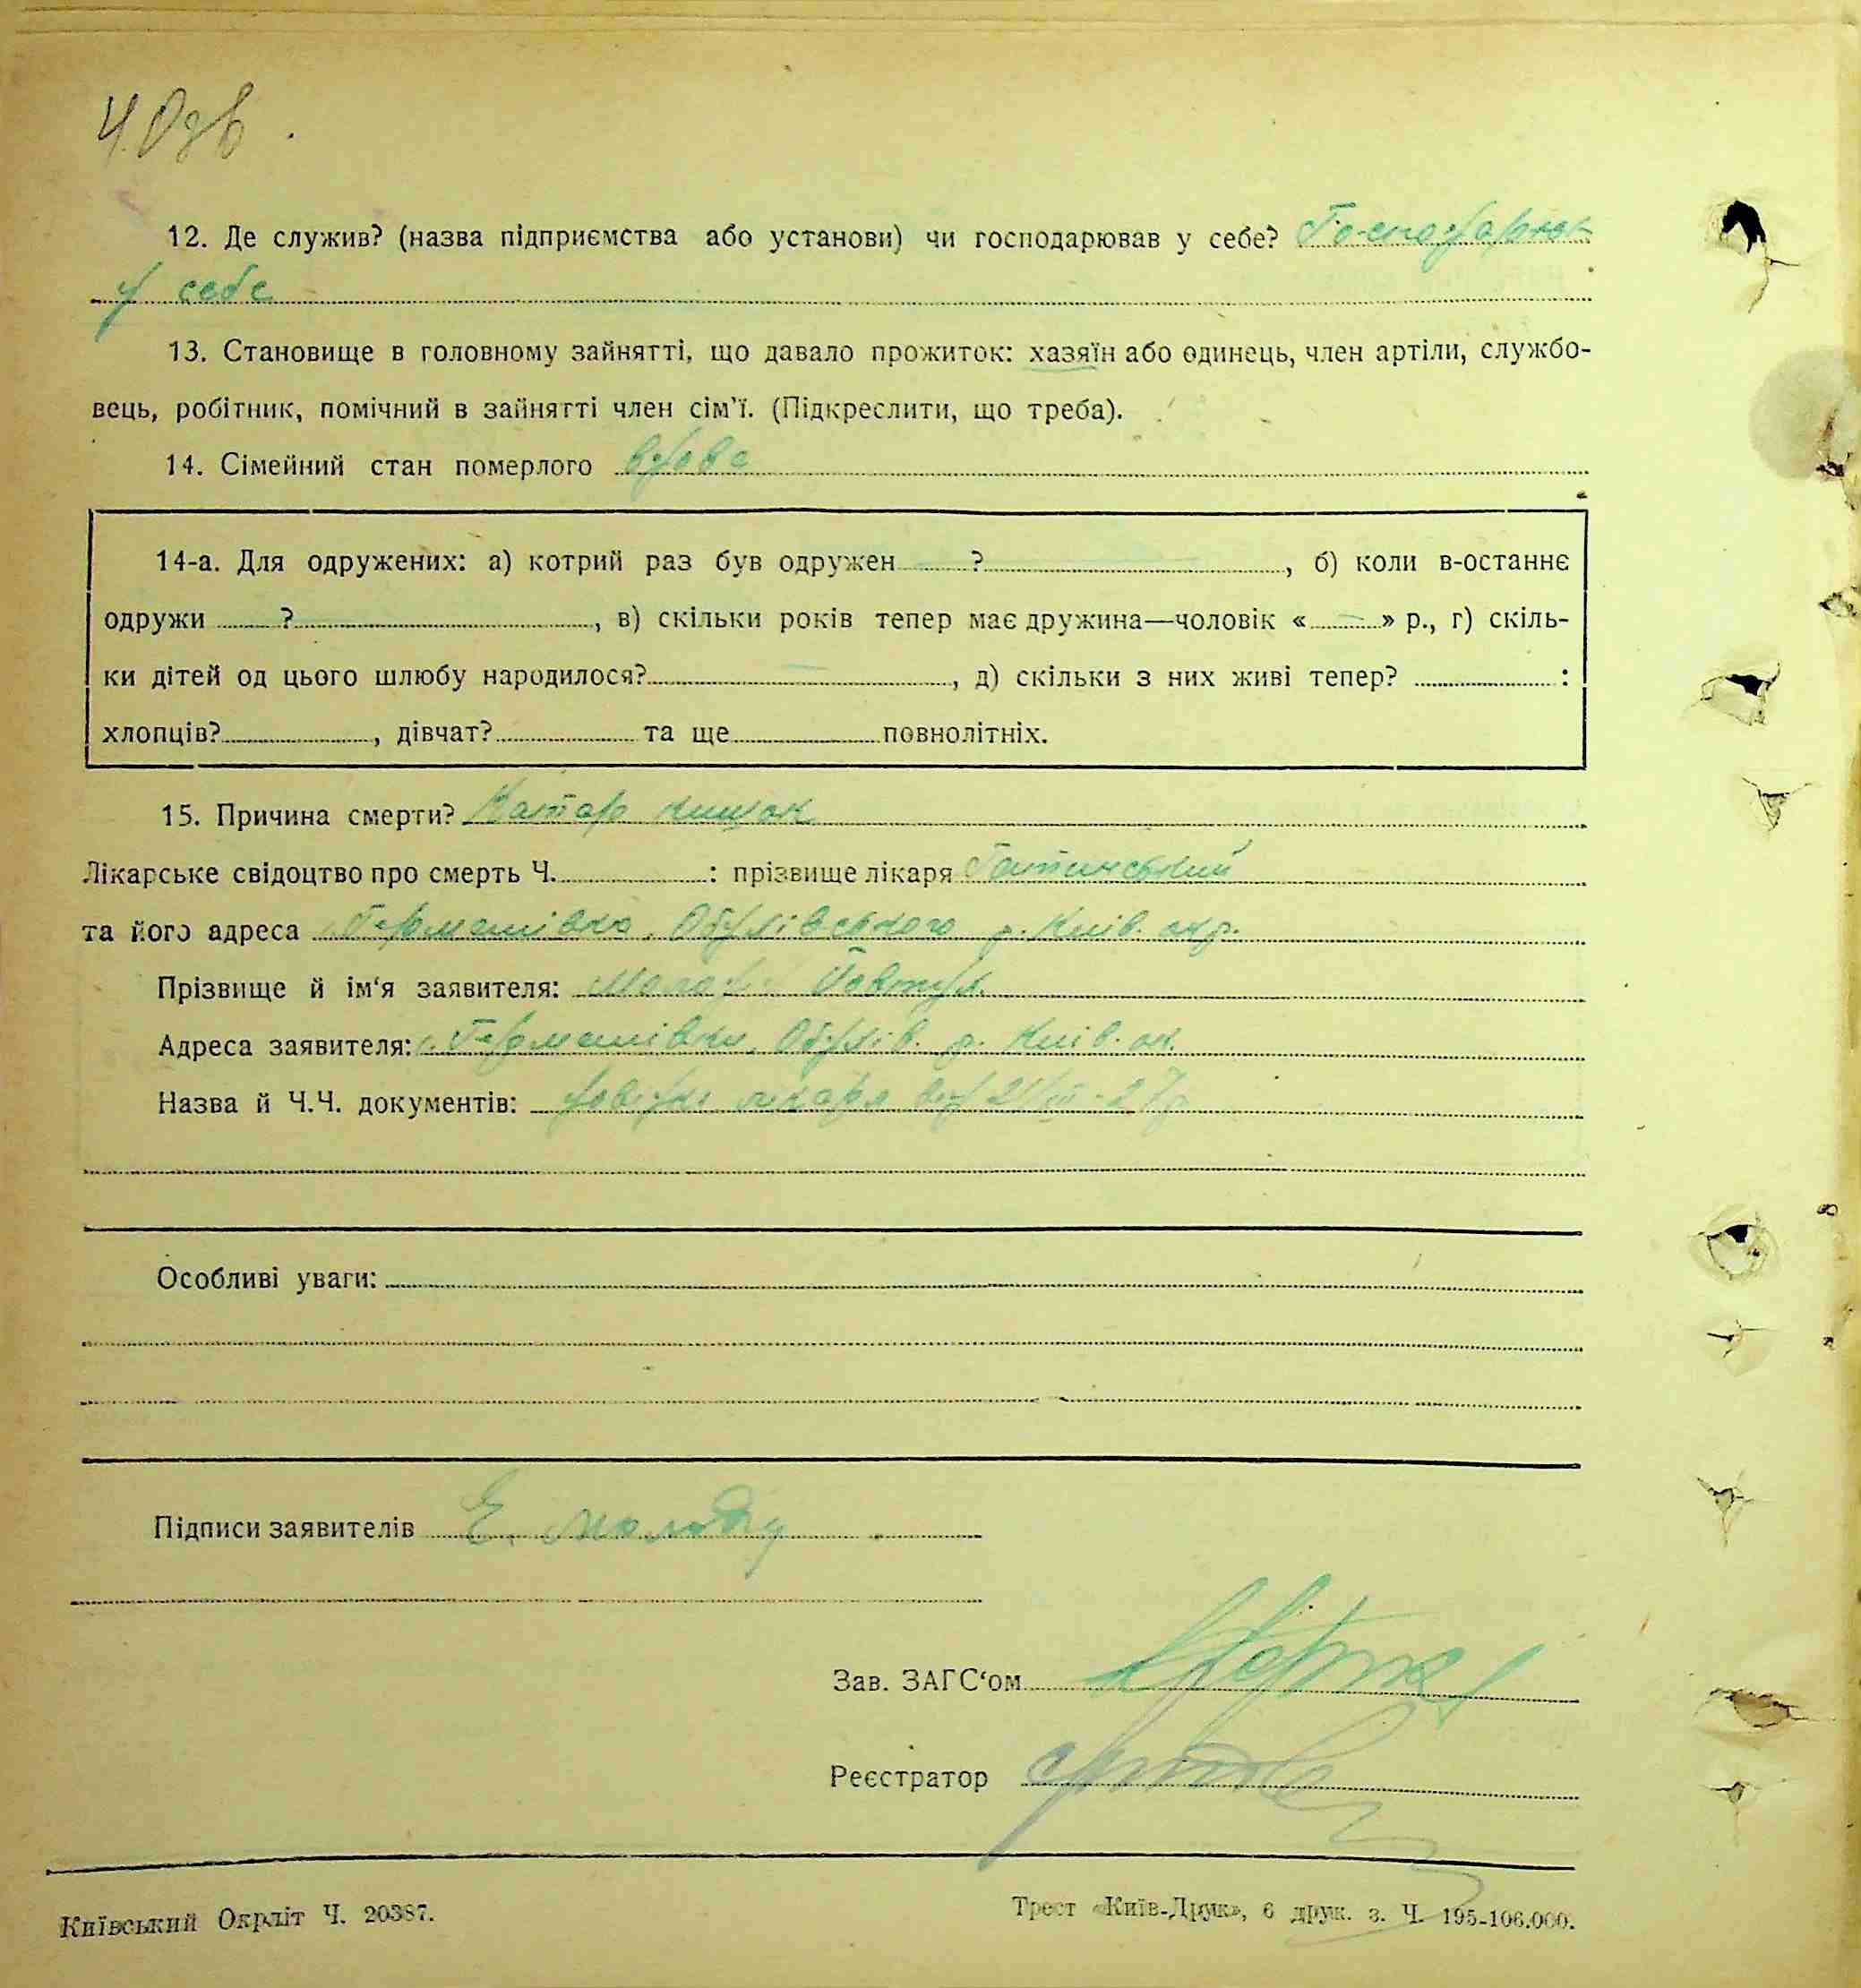 12. Де служив? (назва підприємства або установи) чи господарював у себе? Господарюв
у себе
13. Становище в головному зайнятті, що давало прожиток: хазяїн або одинець, член артіли, службо-
вець, робітник, помічний в зайнятті член сім'ї. (Підкреслити, що треба).
14. Сімейний стан померлого вдова
14-а. Для одружених: а) котрий раз був одружен — ?, б) коли в-останнє
одружи — ?, в) скільки років тепер має дружина—чоловік « — » р., г) скіль-
ки дітей од цього шлюбу народилося? —, д) скільки з них живі тепер? :
хлопців?, дівчат? та ще повнолітніх.
15. Причина смерти? Катар кишок
Лікарське свідоцтво про смерть Ч. : прізвище лікаря
та його адреса с. Германівка, Обухівського р. Київ. окр.
Прізвище й ім'я заявителя:
Адреса заявителя: с. Германівка, Обухів. р. Київ. ок.
Назва й Ч.Ч. документів: довідка лікаря від 21/III-27р
Особливі уваги:
Підписи заявителів Е.
Зав. ЗАГС'ом
Реєстратор
Київський Окрліт Ч. 20387.
Трест «Київ-Друк», 6 друк. з. Ч. 195-106.000.